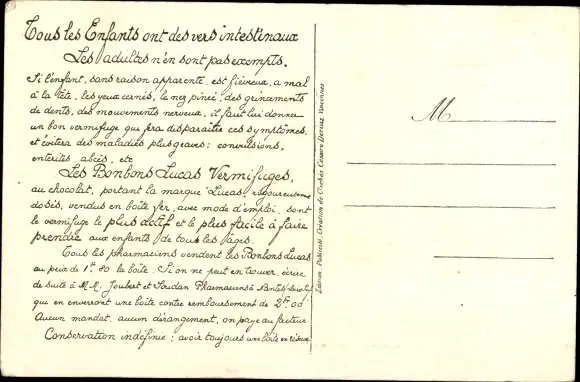 Tous les Enfants ont des vers intestinaux
Les adultes n'en sont pas exempts.
Si l'enfant, sans raison apparente, est fiévreux, a mal
à la tête, les yeux cernés, le nez pincé, des grincements
de dents, des mouvements nerveux, il faut lui donner
un bon vermifuge qui fera disparaître ces symptômes,
et évitera des maladies plus graves: convulsions,
entérites abcès, etc
Les Bonbons Lucas Vermifuges,
au chocolat, portant la marque "Lucas, rigoureusement
dosés, vendus en boîte fer, avec mode d'emploi, sont
le vermifuge le plus actif et le plus facile à faire
prendre aux enfants de tous les âges.
Tous les pharmaciens vendent les Bonbons Lucas
au prix de 1f. 80 la boîte. Si on ne peut en trouver, écrire
de suite à M.M. Joubert et Soudan Pharmaciens à
qui en enverront une boîte contre remboursement de 2f.00
Aucun mandat, aucun dérangement, on paye au facteur
Conservation indéfinie: avoir toujours une boîte en réserve
Edition, Publicité, Création de Clichés Cesaire
M